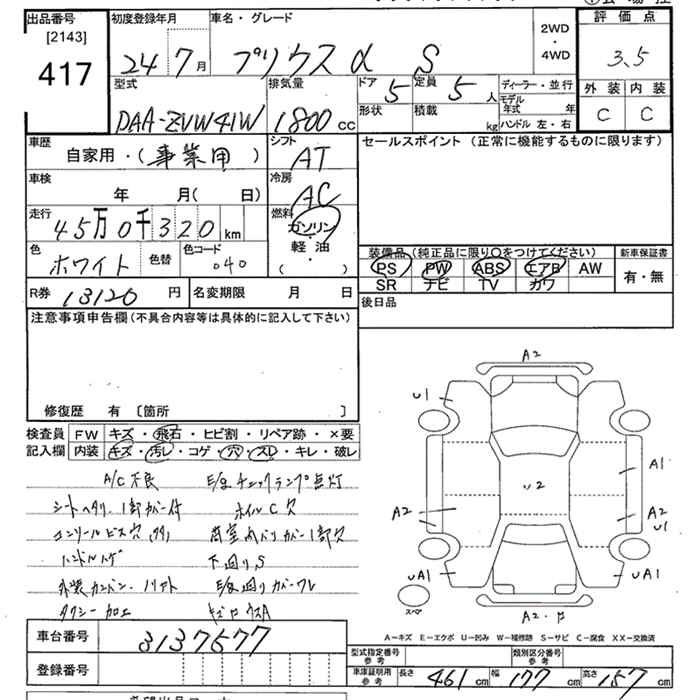 出品番号 初度登録年月 車名・グレード 2WD・4WD 評価点
[2143]
417 24 7月 プリウス α S 3.5
型式 排気量 ドア 5 定員 5人 ディーラー・並行 外装 内装
DAA-ZVW41W 1800cc 形状 積載 kg モデル年式 年 C C
ハンドル 左・右
車歴 シフト セールスポイント(正常に機能するものに限ります)
自家用・(事業用) AT
車検 冷房
年 月(日) AC
走行 燃料
45万0千320km ガソリン
軽・油
( ・ )
色 色替 色コード
ホワイト 040
装備品(純正品に限り○をつけてください) 新車保証書
PS PW ABS エアB AW 有・無
SR ナビ TV カワ
R券 13120円 名変期限 月 日 後日品
注意事項申告欄(不具合内容等は具体的に記入して下さい)
修復歴 有 〔箇所 〕
検査員 FW キズ・飛石・ヒビ割・リペア跡・×要
記入欄 内装 キズ・汚レ・コゲ・穴・スレ・キレ・破レ
A/C不良 E/gチェックランプ点灯
シートヘタリ、1部カバー付 ホイルC穴
コンソールビス穴
ハンドルハゲ 下回りS
タクシー加工
A2
U1
A1
U2
A2
A2
U1
UA1
UA1
スペア
A2・P
A-キズ E-エクボ U-凹み W-補修跡 S-サビ C-腐食 XX-交換済
車台番号 3137577
登録番号
型式指定番号 参考 類別区分番号 参考
車庫証明用 参考 長さ 461cm 幅 177cm 高さ 157cm